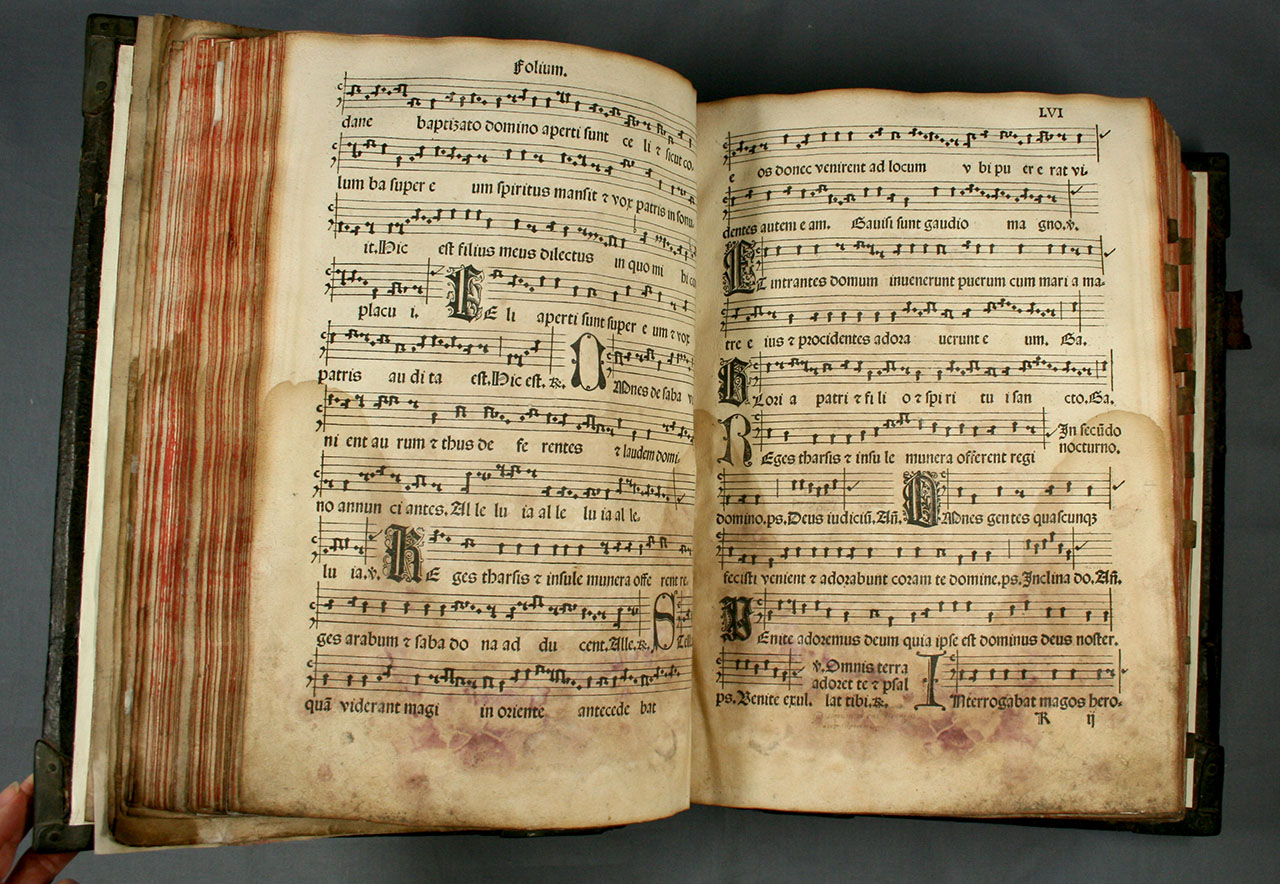 Folium.
dane baptizato domino aperti sunt ce li ⁊ sicut co,
lum ba super e um spiritus mansit ⁊ vox patris in sonu
it. Hic est filius meus dilectus in quo mi bi
placu i. C E li aperti sunt super e um ⁊ vox
patris au di ta est. Hic est. ℟. O Mnes de saba v
ni ent au rum ⁊ thus de fe rentes ⁊ laudem domi,
no annun ci antes. Al le lu ia al le lu ia al le.
lu ia. ℣. R E ges tharsis ⁊ insule munera offe rent re,
ges arabum ⁊ saba do na ad du cent. Alle. ℟. S Tella
quã viderant magi in oriente antecede bat
LVI
e os donec venirent ad locum v bi pu er e rat vi,
dentes autem e am. Gauisi sunt gaudio ma gno. ℣.
E T intrantes domum inuenerunt puerum cum mari a ma-
tre e ius ⁊ procidentes adora uerunt e um. Ga.
G Lori a patri ⁊ fi li o ⁊ spi ri tu i san cto. Ga.
In secũdo
nocturno.
R Eges tharsis ⁊ insu le munera offerent regi
domino. ps. Deus iudiciũ. Añ. O Mnes gentes quascunqꝫ
fecisti venient ⁊ adorabunt coram te domine. ps. Inclina do. Añ.
V Enite adoremus deum quia ipse est dominus deus noster.
℣. Omnis terra
adoret te ⁊ psal
ps. Venite exul. lat tibi. ℟. I Nterrogabat magos hero-
K ij